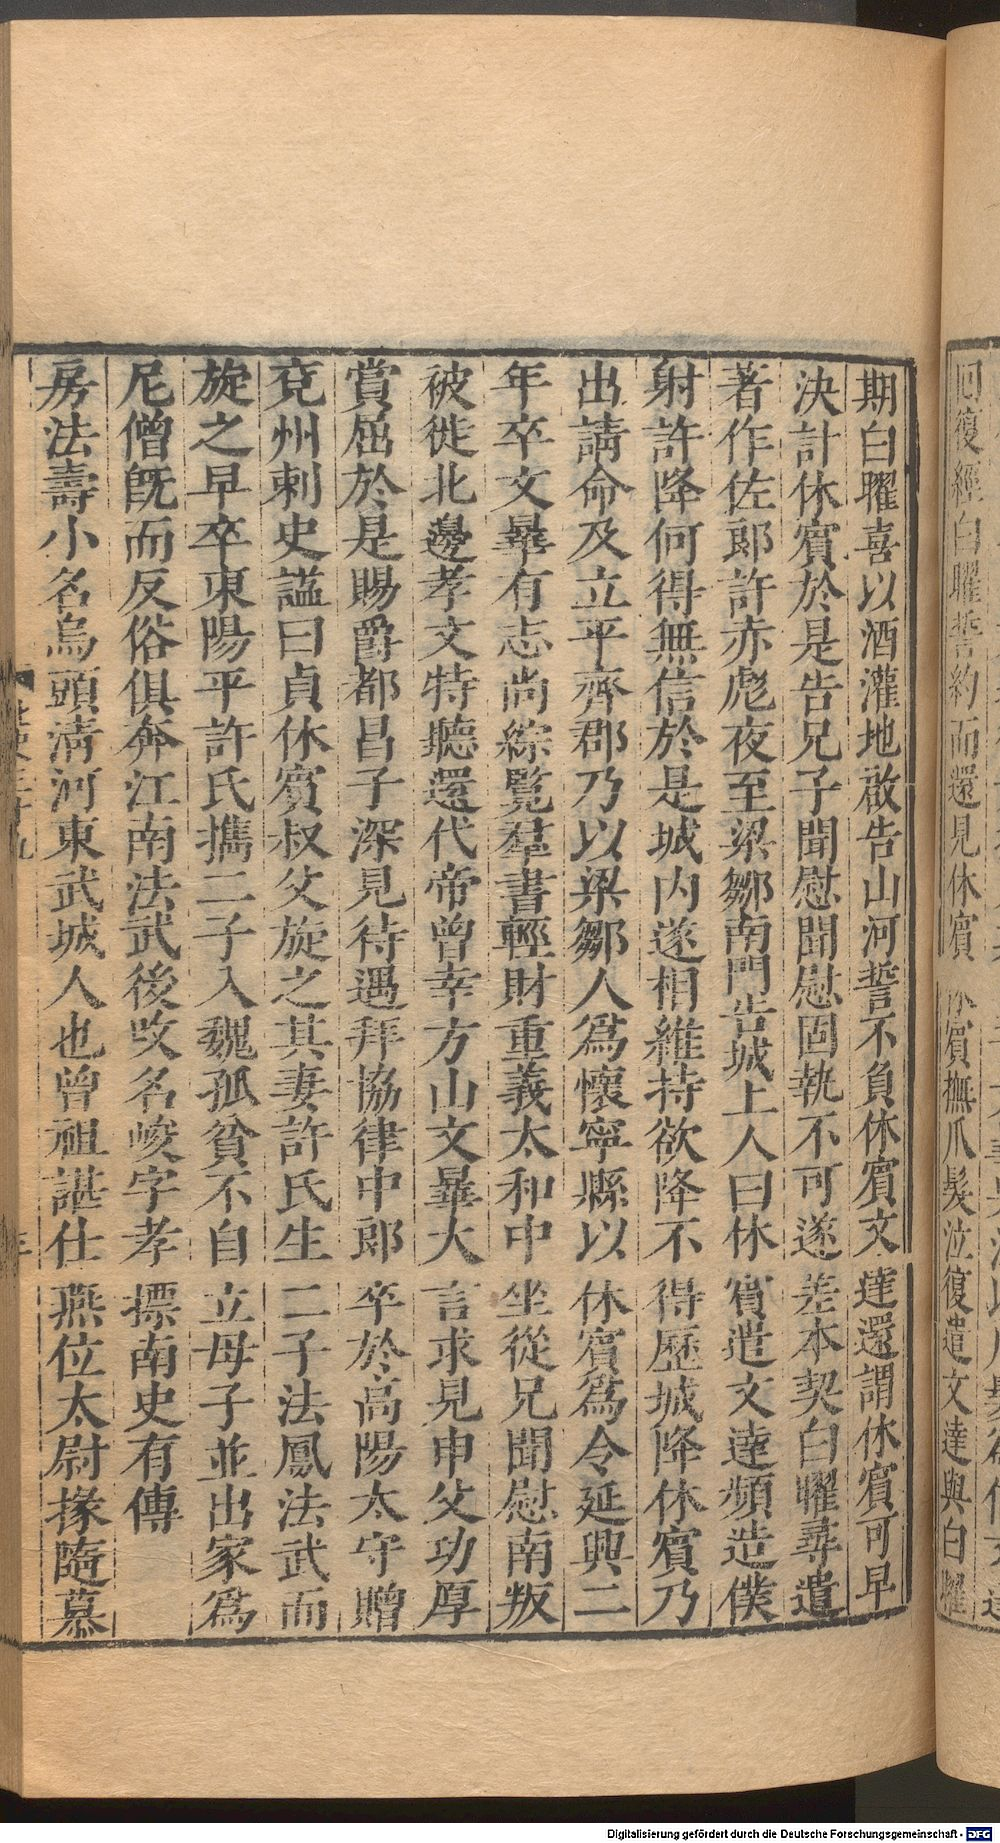 回復經白曜誓約而還見休賓休賓撫爪髮泣復遣文達與白曜
期白曜喜以酒灌地啟告山河誓不負休賓文達還謂休賓可早
決計休賓於是告兄子聞慰聞慰固執不可遂差本契白曜尋遣
著作佐郎許赤彪夜至梁鄒南門告城上人曰休賓遣文達頻造僕
射許降何得無信於是城内遂相維持欲降不得歷城降休賓乃
出請命及立平齊郡乃以梁鄒人爲懷寧縣以休賓爲令延興二
年卒文曅有志尚綜覽羣書輕財重義太和中坐從兄聞慰南叛
被徙北邊孝文特聽還代帝曾幸方山文曅大言求見申父功厚
賞屈於是賜爵都昌子深見待遇拜協律中郎卒於高陽太守贈
兗州刺史謚曰貞休賓叔父旋之其妻許氏生二子法鳳法武而
旋之早卒東陽平許氏攜二子入魏孤貧不自立母子並出家爲
尼僧旣而反俗俱奔江南法武後攺名峻字孝摽南史有傳
房法壽小名烏頭清河東武城人也曾祖諶仕燕位太尉掾隨慕
Digitalisierung gefördert durch die Deutsche Forschungsgemeinschaft - DFG